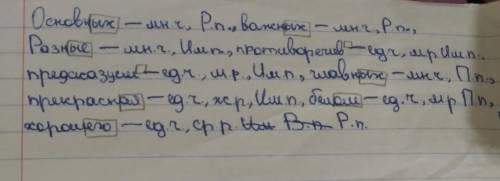 Основных – мн.ч, Р.п., важных – мн.ч, Р.п.,
Разные – мн.ч., Им.п, противоречив – ед.ч, м.р Им.п.,
предсказуем – ед.ч, м.р., Им.п, главных – мн.ч, П.п.,
прекрасная – ед.ч, ж.р, Им.п, белом – ед.ч, м.р П.п,
хорошего – ед.ч, ср.р. Им В.п Р.п.